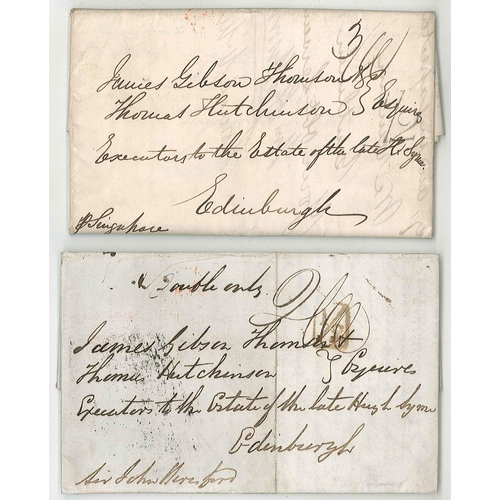 James Gibson Thomson &
Thomas Hutchinson } Esquires
Executors to the Estate of the late H. Syme
Edinburgh
p Singapore
Double only
James Gibson Thomson &
Thomas Hutchinson } Esquires
Executors to the Estate of the late Hugh Syme
Edinburgh
Sir John Beresford